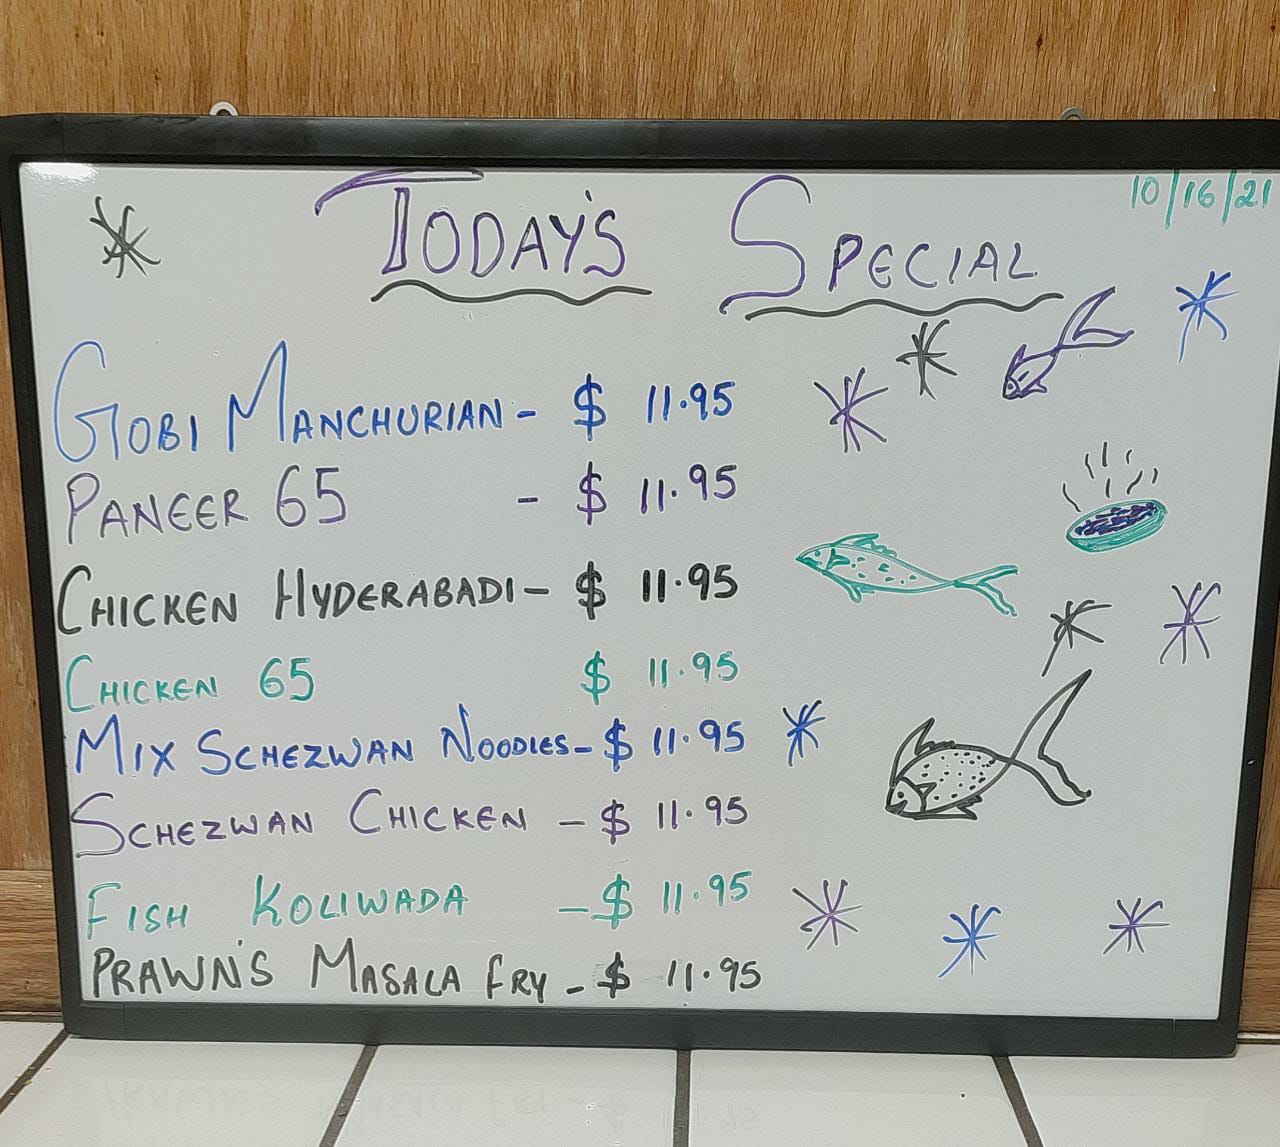 10/16/21
TODAY'S SPECIAL
GOBI MANCHURIAN - $ 11.95
PANEER 65 - $ 11.95
CHICKEN HYDERABADI - $ 11.95
CHICKEN 65 $ 11.95
MIX SCHEZWAN NOODLES - $ 11.95
SCHEZWAN CHICKEN - $ 11.95
FISH KOLIWADA - $ 11.95
PRAWN'S MASALA FRY - $ 11.95